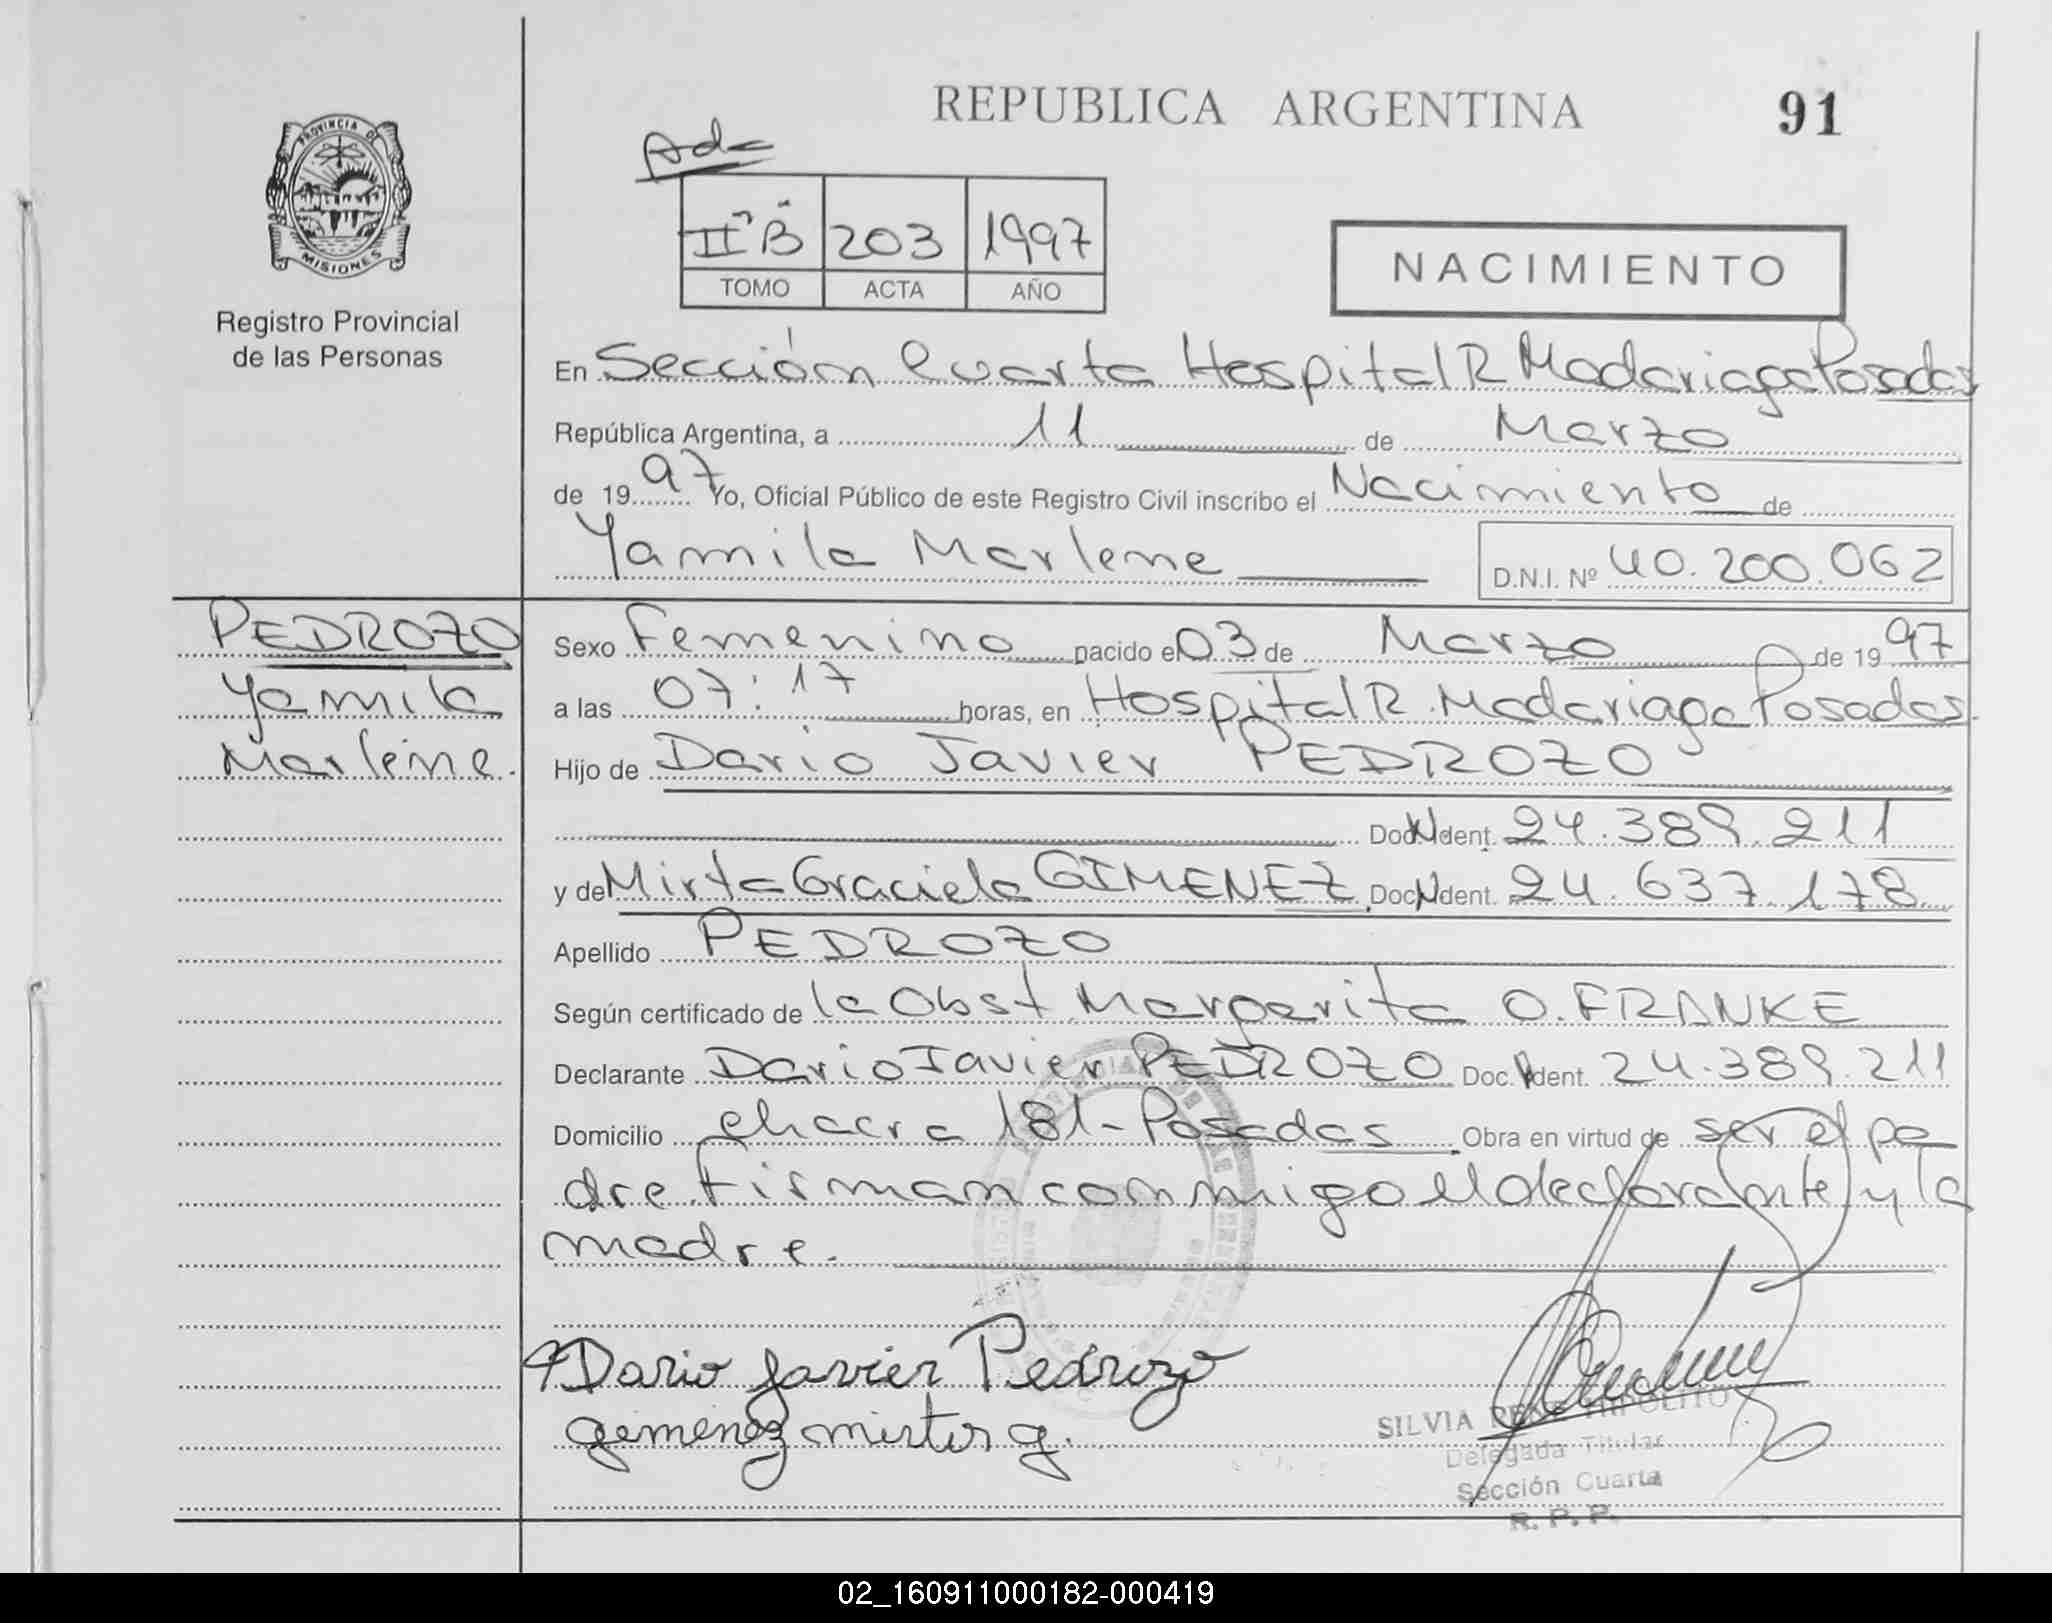 REPUBLICA ARGENTINA
91
PROVINCIA DE
MISIONES
Registro Provincial
de las Personas
Adc
II "B" 203 1997
TOMO ACTA AÑO
NACIMIENTO
En Sección Cuarta Hospital R Madariaga Posadas
República Argentina, a 11 de Marzo
de 1997 Yo, Oficial Público de este Registro Civil inscribo el Nacimiento de
Yamila Marlene D.N.I. Nº 40.200.062
PEDROZO
Yamila
Marlene.
Sexo Femenino nacido el 03 de Marzo de 1997
a las 07:17 horas, en Hospital R. Madariaga Posadas.
Hijo de Dario Javier PEDROZO
Doc. Ident. 24.389.211
y de Mirta Graciela GIMENEZ Doc. Ident. 24.637.178
Apellido PEDROZO
Según certificado de la Obst Margarita O. FRANKE
Declarante Dario Javier PEDROZO Doc. Ident. 24.389.211
Domicilio chacra 181-Posadas Obra en virtud de ser el pa
dre firman conmigo el declarante y la
madre.
Dario Javier Pedrozo
gimenez mirta g.
SILVIA RENE HIPOLITO
Delegada Titular
Sección Cuarta
R. P. P.
02_160911000182-000419